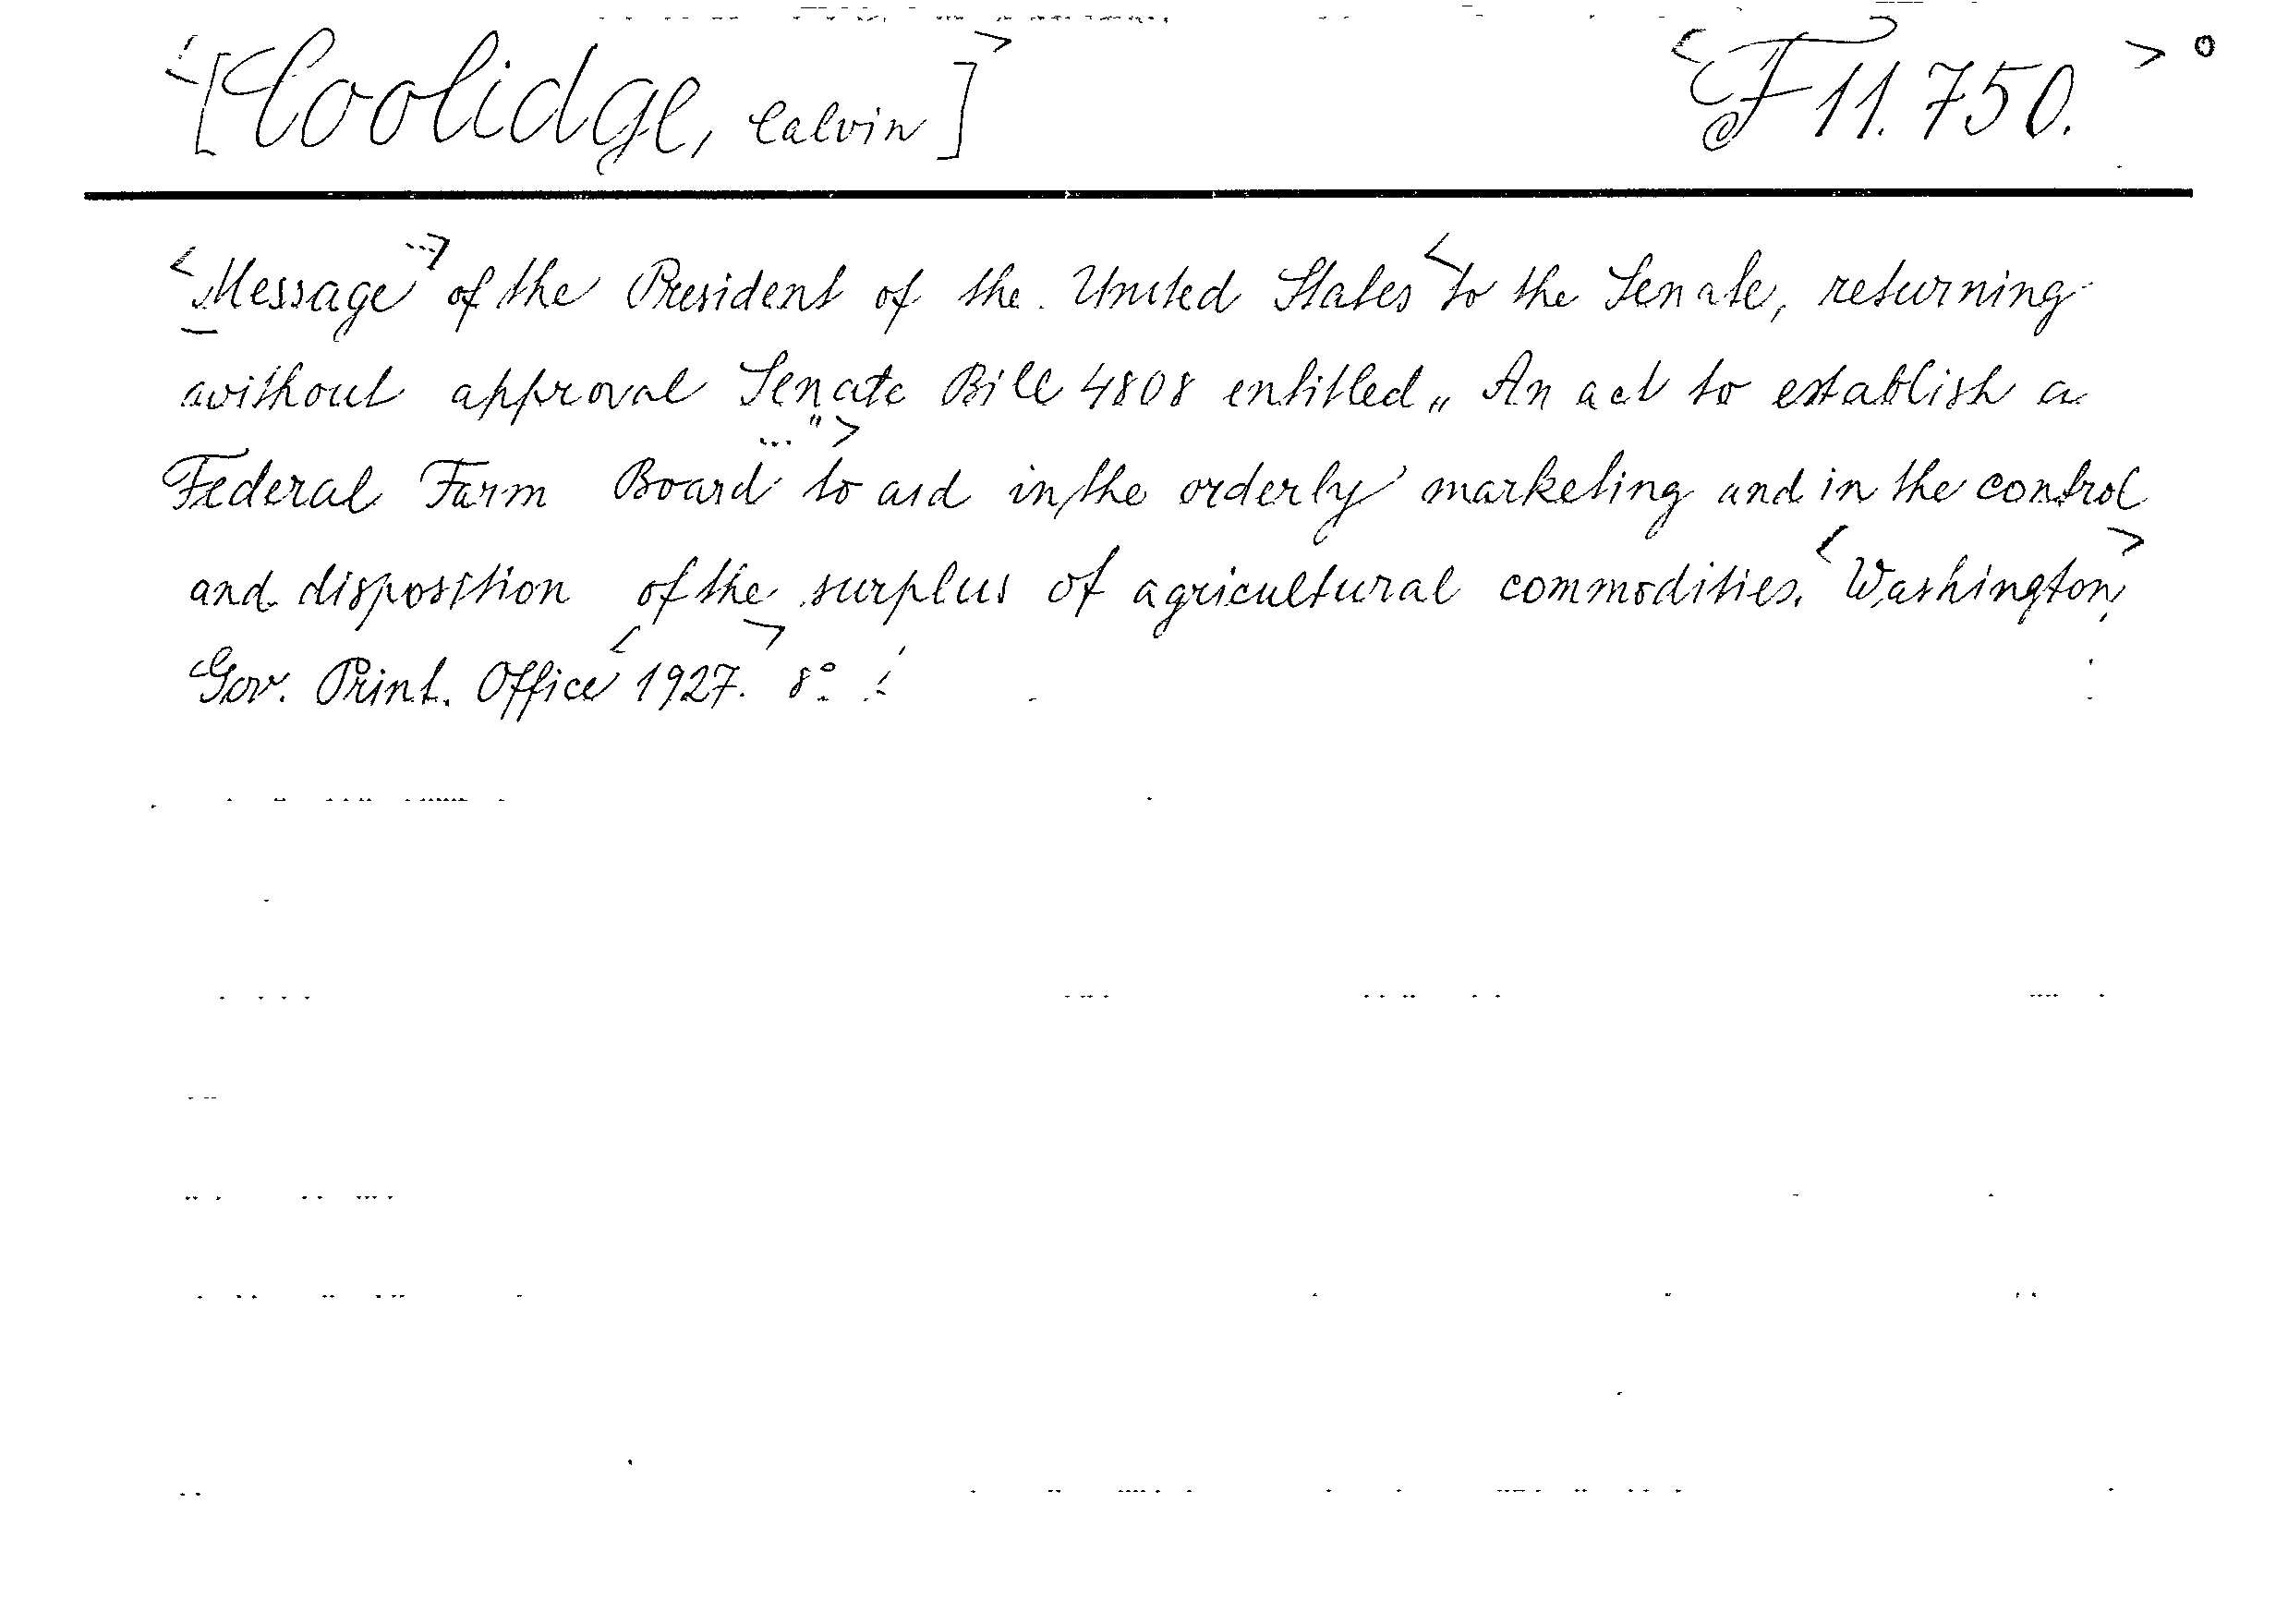 <[Coolidge, Calvin]> <F 11.750.> °
<Message ...> of the President of the United States < to the Senate, returning
without approval Senate Bill 4808 entitled „An act to establish a
Federal Farm Board ..."> to aid in the orderly marketing and in the control
and disposition of the surplus of agricultural commodities. <Washington,>
Gov. Print. Office <1927.> 8°.